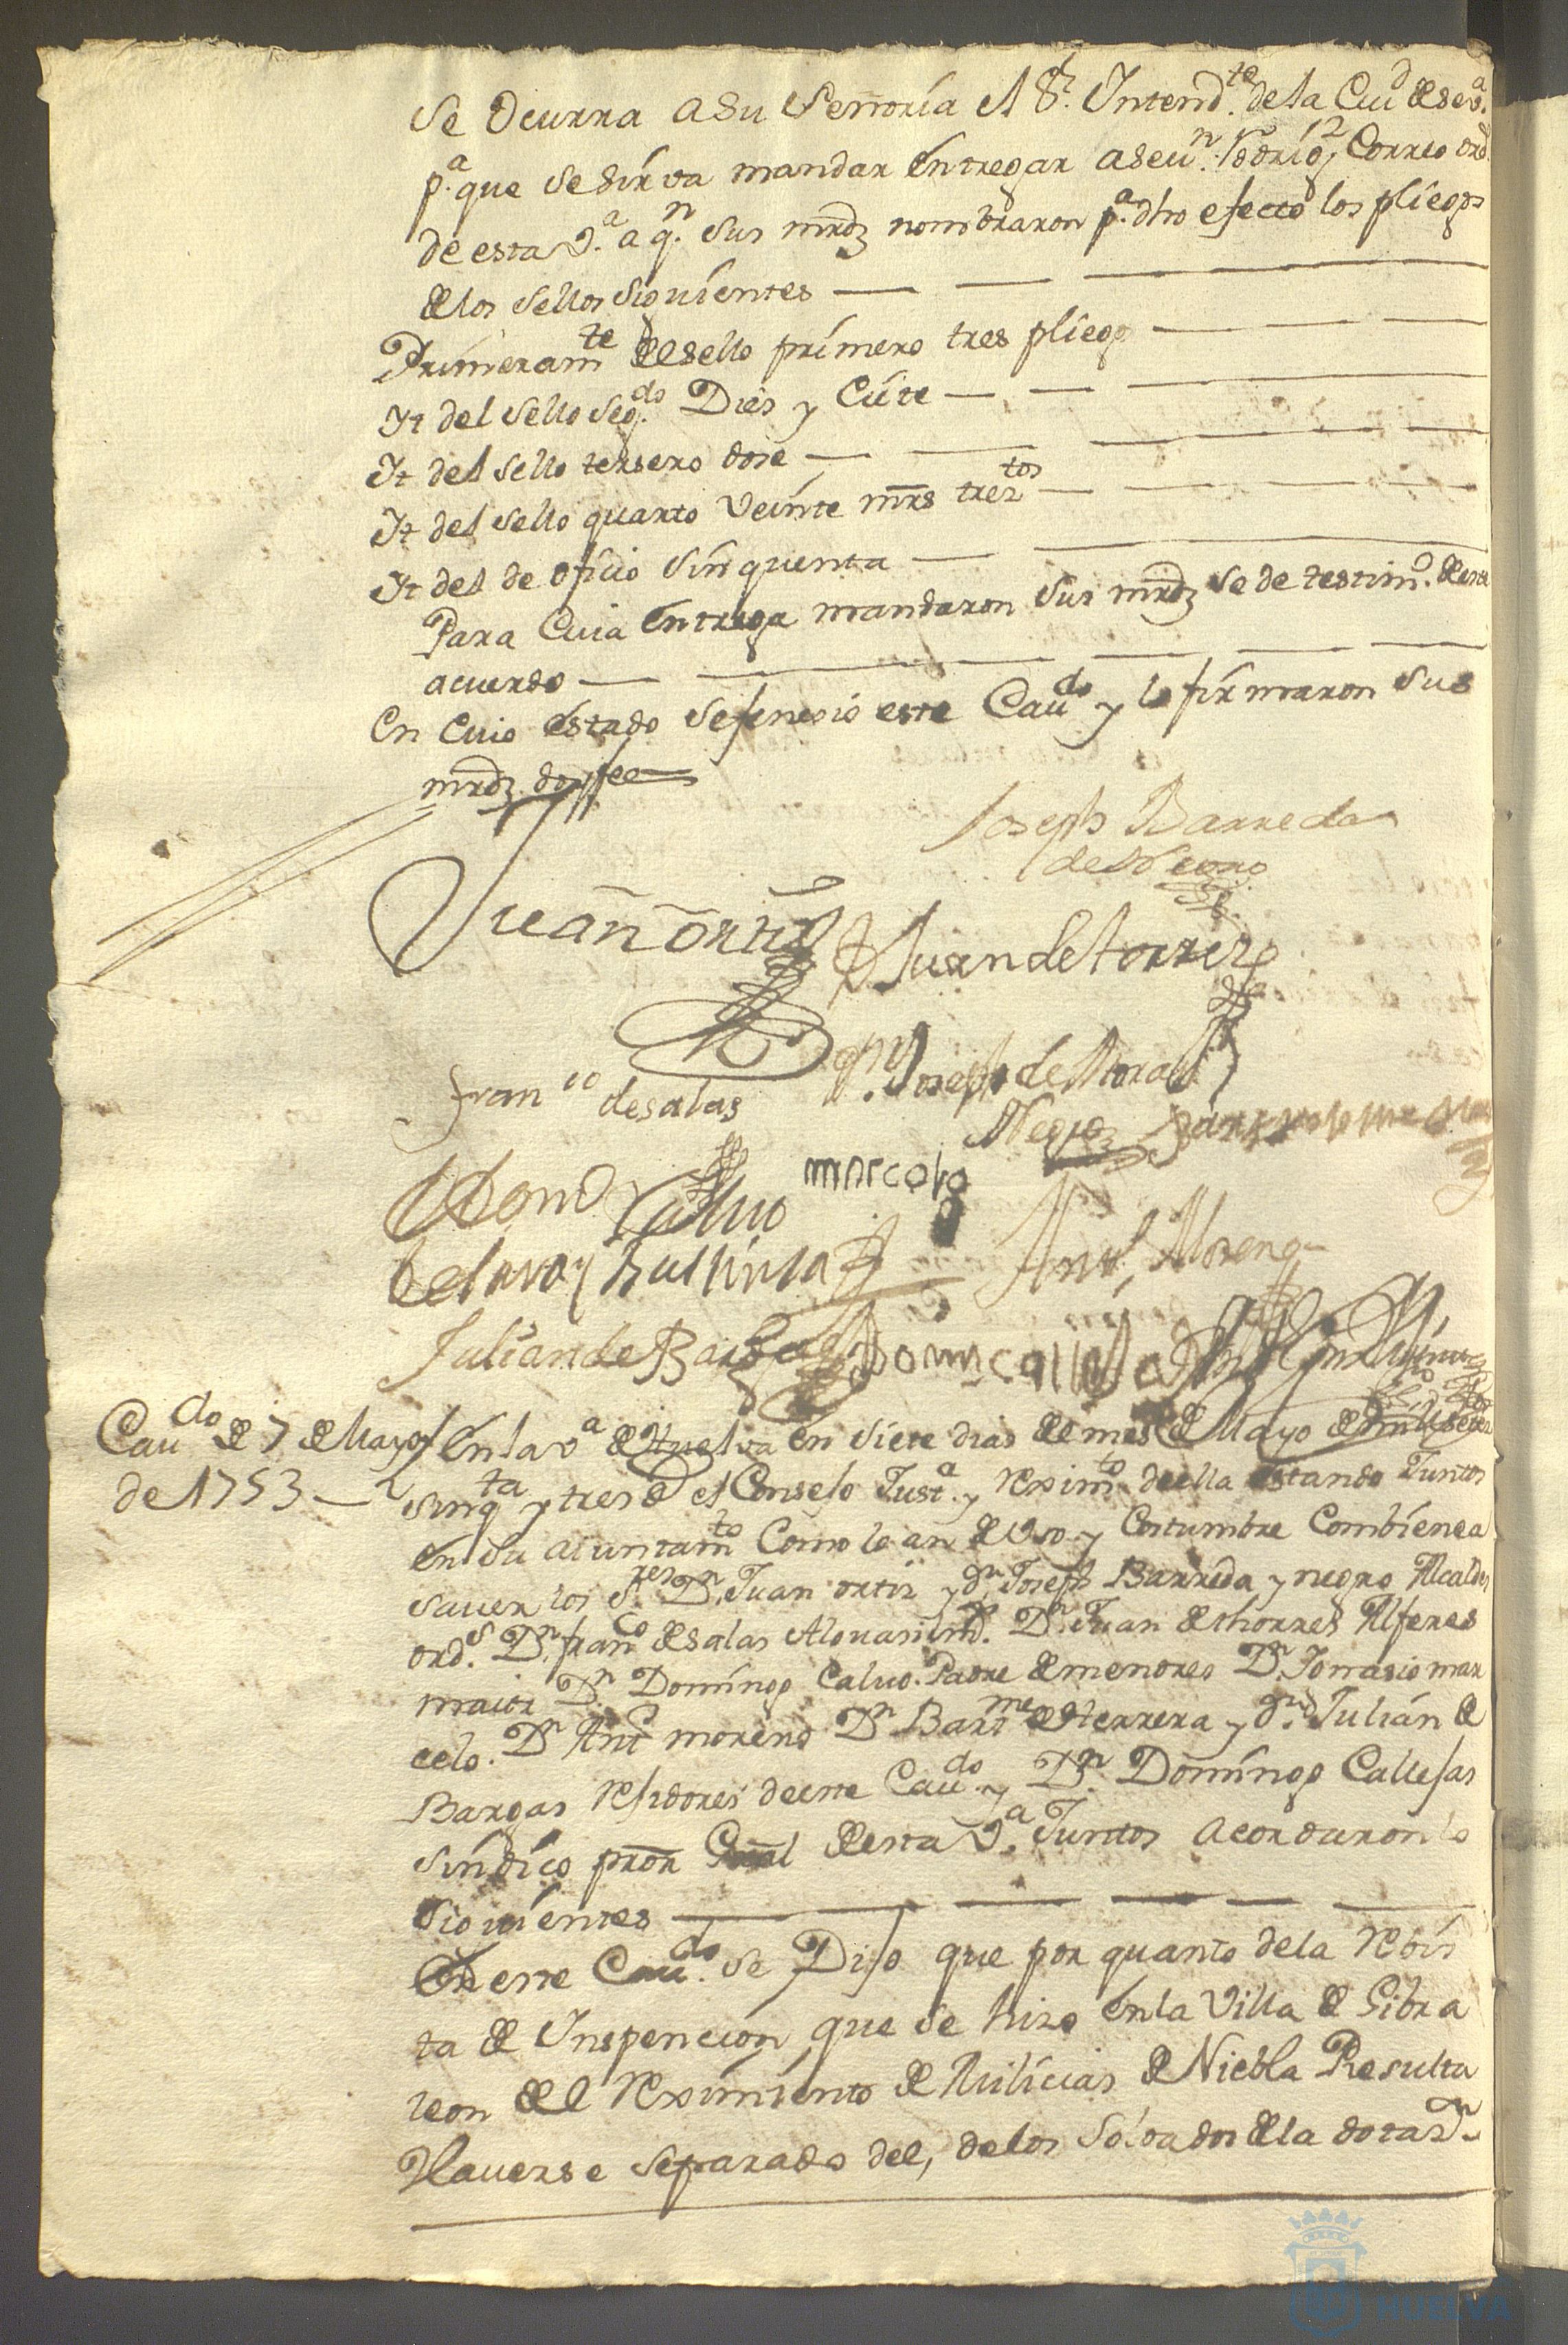 Se Ocurra a Su Señoría el Sr. Intendte. de la Ciud de Seva.
pa. que se sirva mandar entregar a Seun. Rodrigz Correo ord.
de esta Va. a qn. Sus mrdz nombraron pa. dho efecto los pliegos
de los Sellos Siguientes
Primeramte de Sello primero tres pliegos
It del Sello Segdo. Dies y Ciete
It del Sello tersero dose
It del Sello quarto Veinte mrs treztos
It del de oficio Sinquenta
Para Cuia entrega mandaron Sus mrdz Se de testimo. de este
acuerdo
En Cuio estado Se fenesio este Caudo y lo firmaron Sus
mrdz doy fee
Joseph Barreda
de Negro
Juan Ortiz
Juan de torres
Franco de Salas
Joseph de Mora
Negro
Domo Calvo
marcelo
Antt. Moreno
Julian de Bargas
Caudo de 7 de Mayo
de 1753
En la Va de Huelva en Siete dias de mes de Mayo de mil Setez
Sinqta y tres el Conselo Justa. y Reximto de ella estando Juntos
en Su aiuntamto Como lo an de Uso y Costumbre Combiene a
Saver los Sres. Dn. Juan ortiz y dn. Joseph Barreda y negro Alcaldes
ords. Dn. franco de Salas Alguasil m. Dn. Juan de thorres Alferes
maior Dn. Domingo Calvo. Padre de menores Dn. Ygnasio mar
celo. Dn Anto moreno Dn Bartme de Herrera y dn. Julián de
Bargas Residores de este Caudo. y Dn. Domingo Callejas
Síndico pror Gral de esta Va. Juntos acordaron lo
Siguientes
En este Caudo. Se Dijo que por quanto de la Revis
ta de Inspencion que Se hizo en la Villa de Gibra
leon de el Reximiento de Milicias de Niebla Resulta
Haverse Separado del, de los Soldados de la dotasn
HUELVA